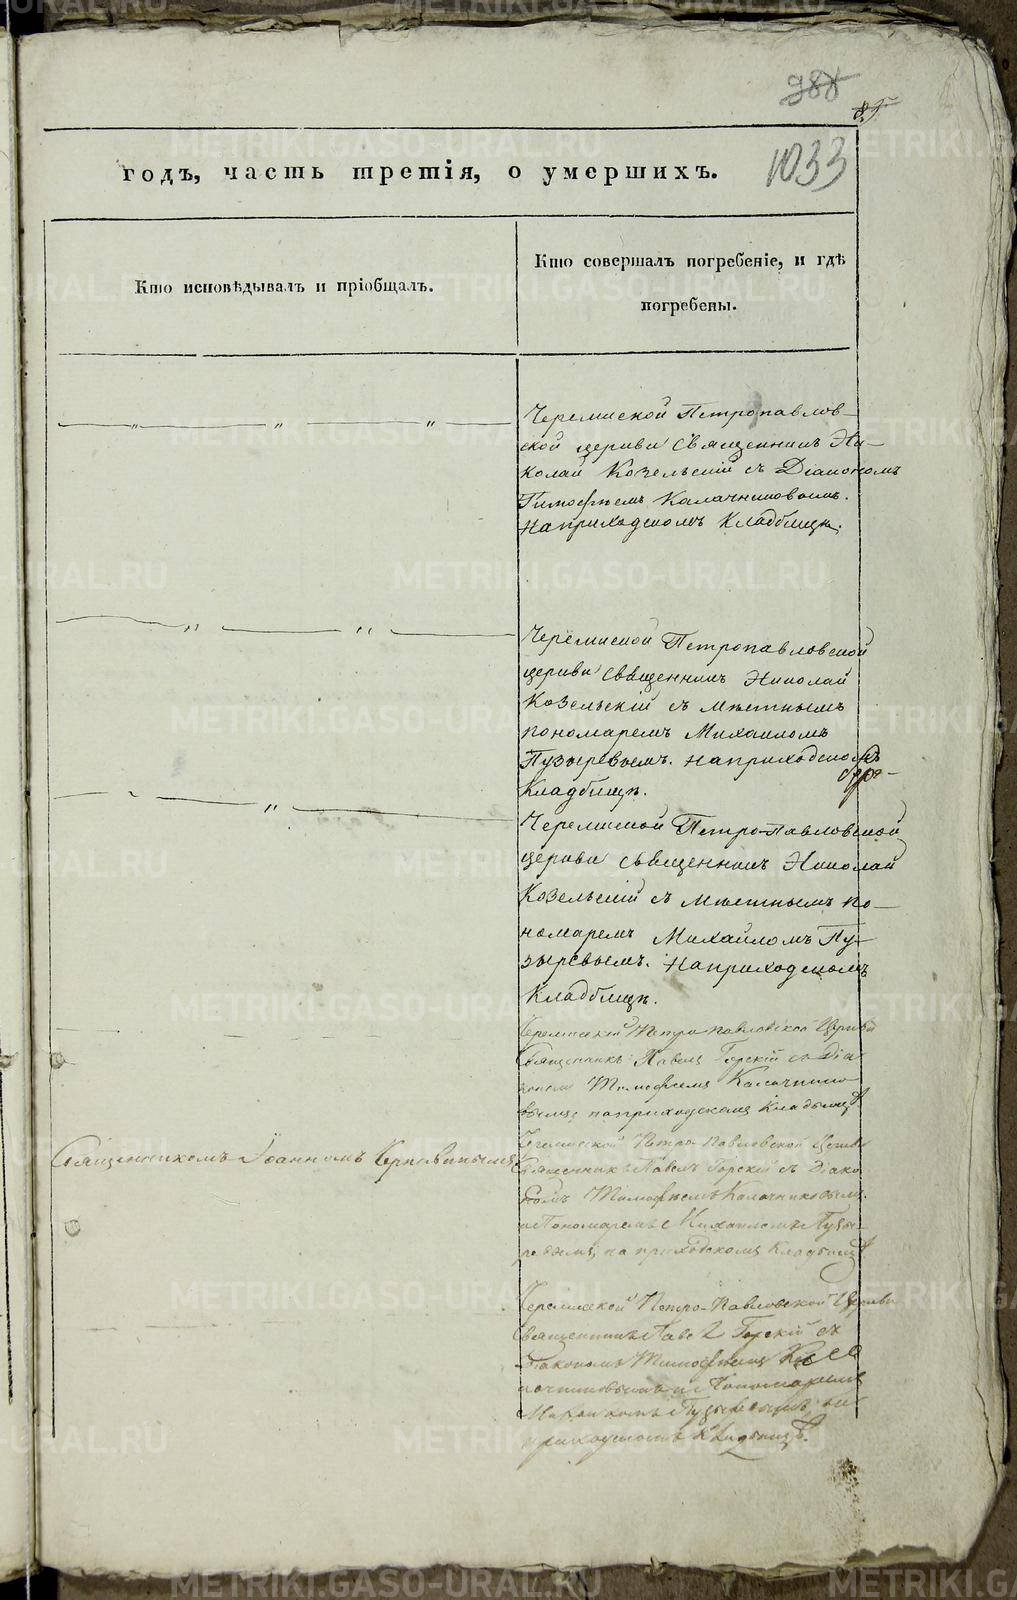 988
87.
1033
годъ, часть третія, о умершихъ.
Кто исповѣдывалъ и пріобщалъ.
Кто совершалъ погребеніе, и гдѣ
погребены.
Черемиской Петропавлов-
ской церкви Священникъ Ни-
колай Козельскій съ Діакономъ
Тимофѣемъ Калачниковымъ.
На приходскомъ Кладбищѣ.
Черемиской Петропавловской
церкви священникъ Николай
Козельскій съ мѣстнымъ
пономаремъ Михаиломъ
Пузыревымъ. на приходскомъ
Кладбищѣ.
Черемиской Петро-Павловской
церкви священникъ Николай
Козельскій съ мѣстнымъ по-
номаремъ Михайломъ Пу-
зыревымъ. На приходскомъ
Кладбищѣ.
Черемиской Петро павловской Церкви
Священникъ Павелъ Горскій съ Діа-
кономъ Тимофѣемъ Калачнико-
вымъ на приходскомъ кладбищѣ.
Священникомъ Іоанномъ
Черемиской Петро-Павловской Церкви
Священникъ Павелъ Горскій съ Діако-
номъ Тимофѣемъ Калачниковымъ
и Пономаремъ Михаиломъ Пузы-
ревымъ, на приходскомъ Кладбищѣ
Черемиской Петро-Павловской Церкви
Священникъ Павелъ Горскій съ
Діакономъ Тимофѣемъ Кала-
чниковымъ и Пономаремъ
Михаиломъ Пузыревымъ, на
приходскомъ Кладбищѣ.
METRIKI.GASO-URAL.RU